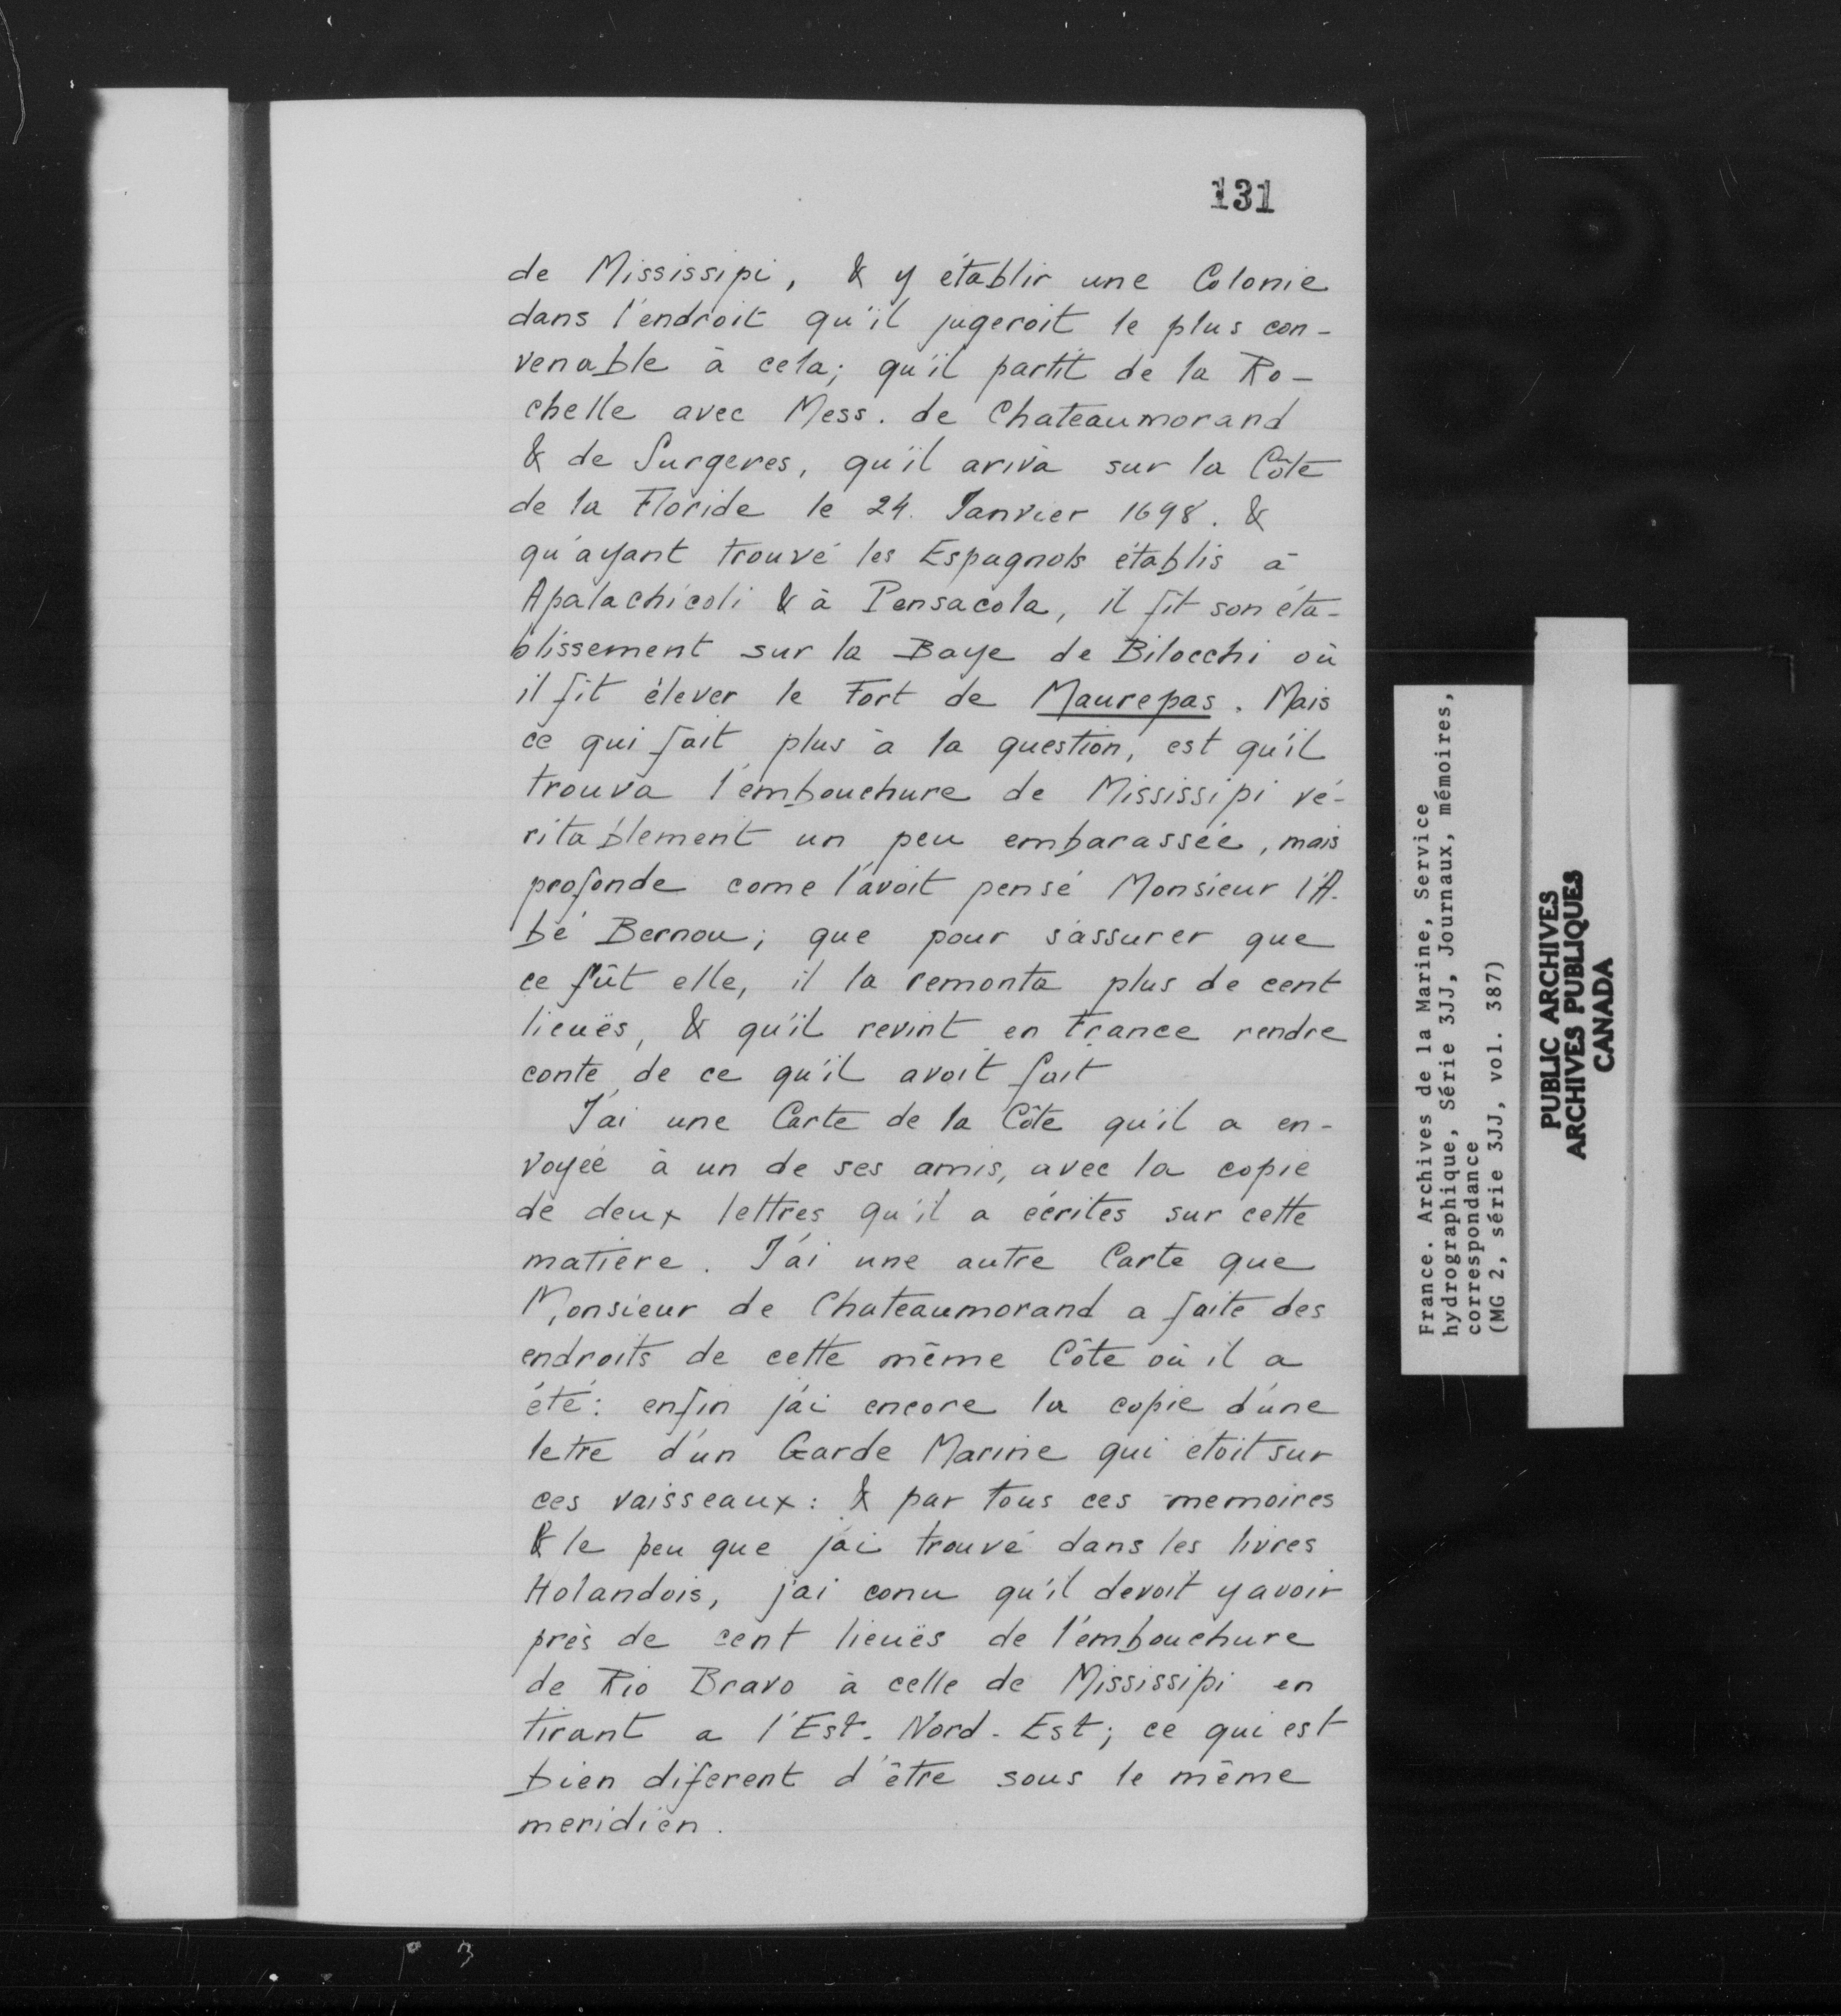 131
de Mississipi, & y établir une Colonie
dans l'endroit qu'il jugeroit le plus con-
venable à cela; qu'il partit de la Ro-
chelle avec Mess. de Chateaumorand
& de Surgeres, qu'il ariva sur la Côte
de la Floride le 24. Janvier 1698. &
qu'ayant trouvé les Espagnols établis à
Apalachicoli & à Pensacola, il fit son éta-
blissement sur la Baye de Bilocchi où
il fit élever le Fort de Maurepas. Mais
ce qui fait plus à la question, est qu'il
trouva l'embouchure de Mississipi vé-
ritablement un peu embarassée, mais
profonde come l'avoit pensé Monsieur l'A-
bé Bernou; que pour s'assurer que
ce fût elle, il la remonta plus de cent
lieuës, & qu'il revint en France rendre
conte de ce qu'il avoit fait
J'ai une Carte de la Côte qu'il a en-
voyée à un de ses amis, avec la copie
de deux lettres qu'il a écrites sur cette
matiere. J'ai une autre Carte que
Monsieur de Chateaumorand a faite des
endroits de cette même Côte où il a
été: enfin j'ai encore la copie d'une
letre d'un Garde Marine qui étoit sur
ces vaisseaux: & par tous ces memoires
& le peu que j'ai trouvé dans les livres
Holandois, j'ai conu qu'il devoit y avoir
près de cent lieuës de l'embouchure
de Rio Bravo à celle de Mississipi en
tirant a l'Est-Nord-Est; ce qui est
bien diferent d'être sous le même
meridien.
France. Archives de la Marine, Service
hydrographique, Série 3JJ, Journaux, mémoires,
correspondance
(MG 2, série 3JJ, vol. 387)
PUBLIC ARCHIVES
ARCHIVES PUBLIQUES
CANADA